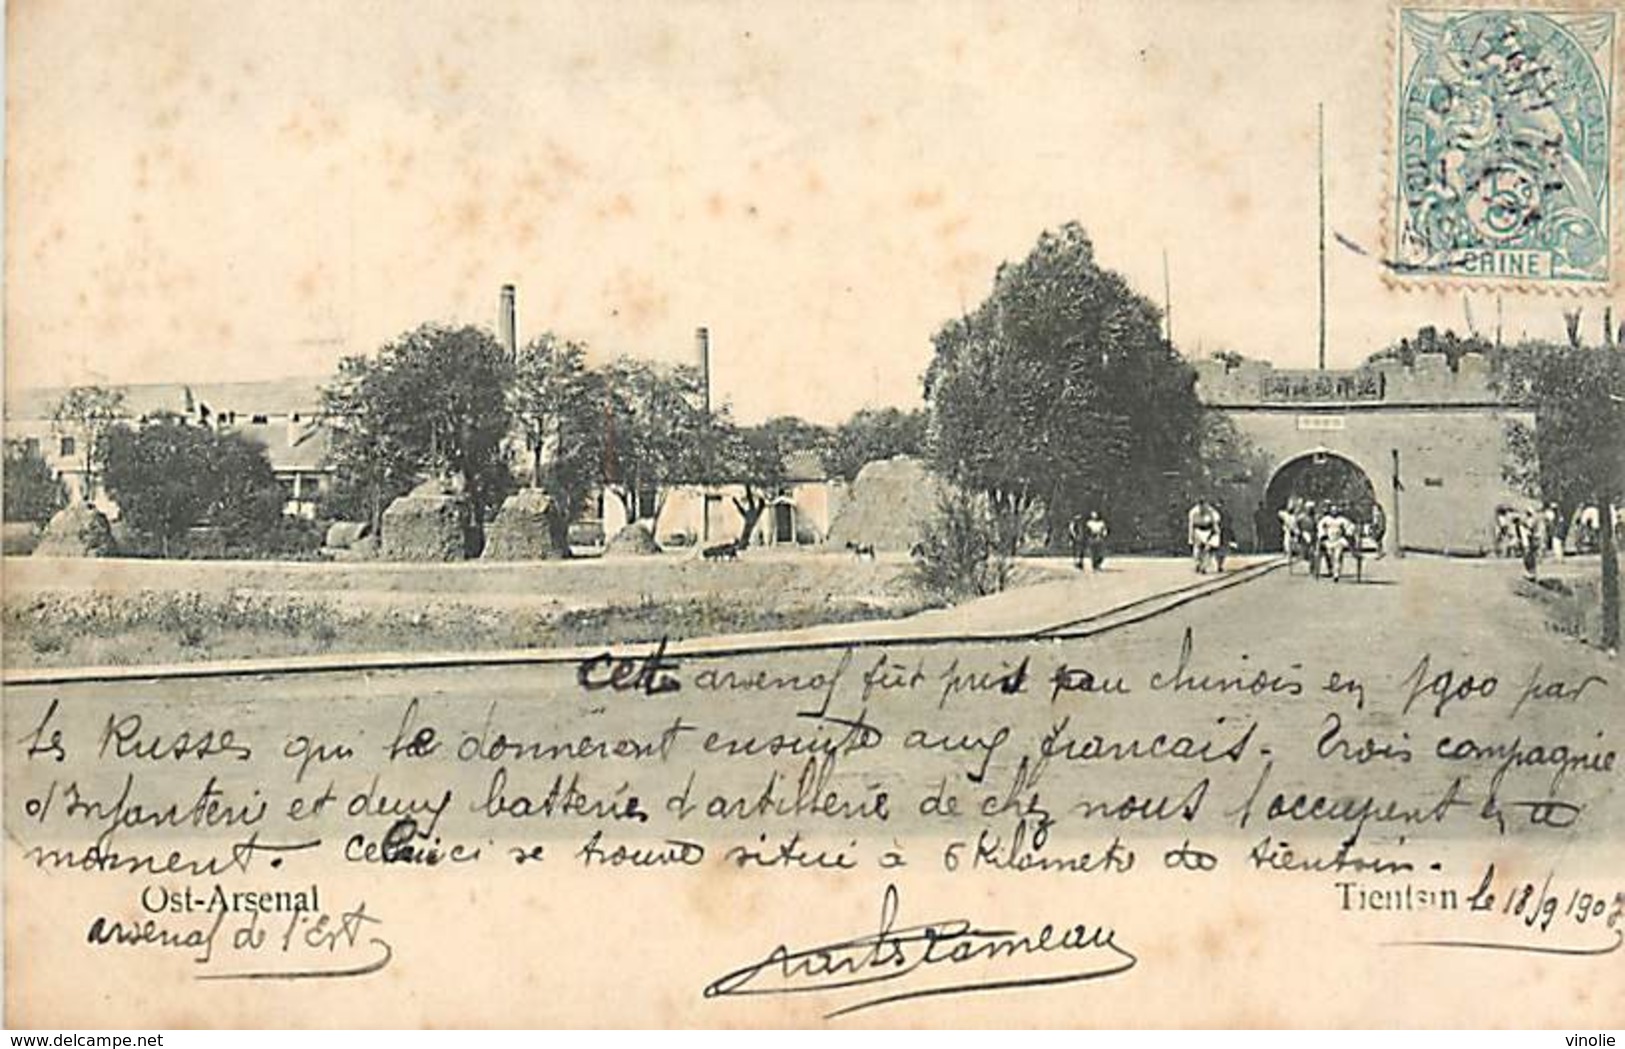 CHINE
5
Cette arsenal fût pris au chinois en 1900 par
les Russes qui le donnèrent ensuite aux francais. Trois compagnie
d'Infanterie et deux batteries d'artillerie de chez nous l'occupent en ce
moment. Celui ci se trouve situé à 6 Kilometre de tientsin.
Ost-Arsenal
Tientsin le 18/9 190
arsenal de l'Est
Rameau
www.delcampe.net
vinolie